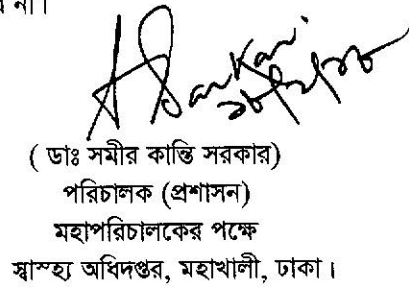 না।
( ডাঃ সমীর কান্তি সরকার)
পরিচালক (প্রশাসন)
মহাপরিচালকের পক্ষে
স্বাস্হ্য অধিদপ্তর, মহাখালী, ঢাকা।